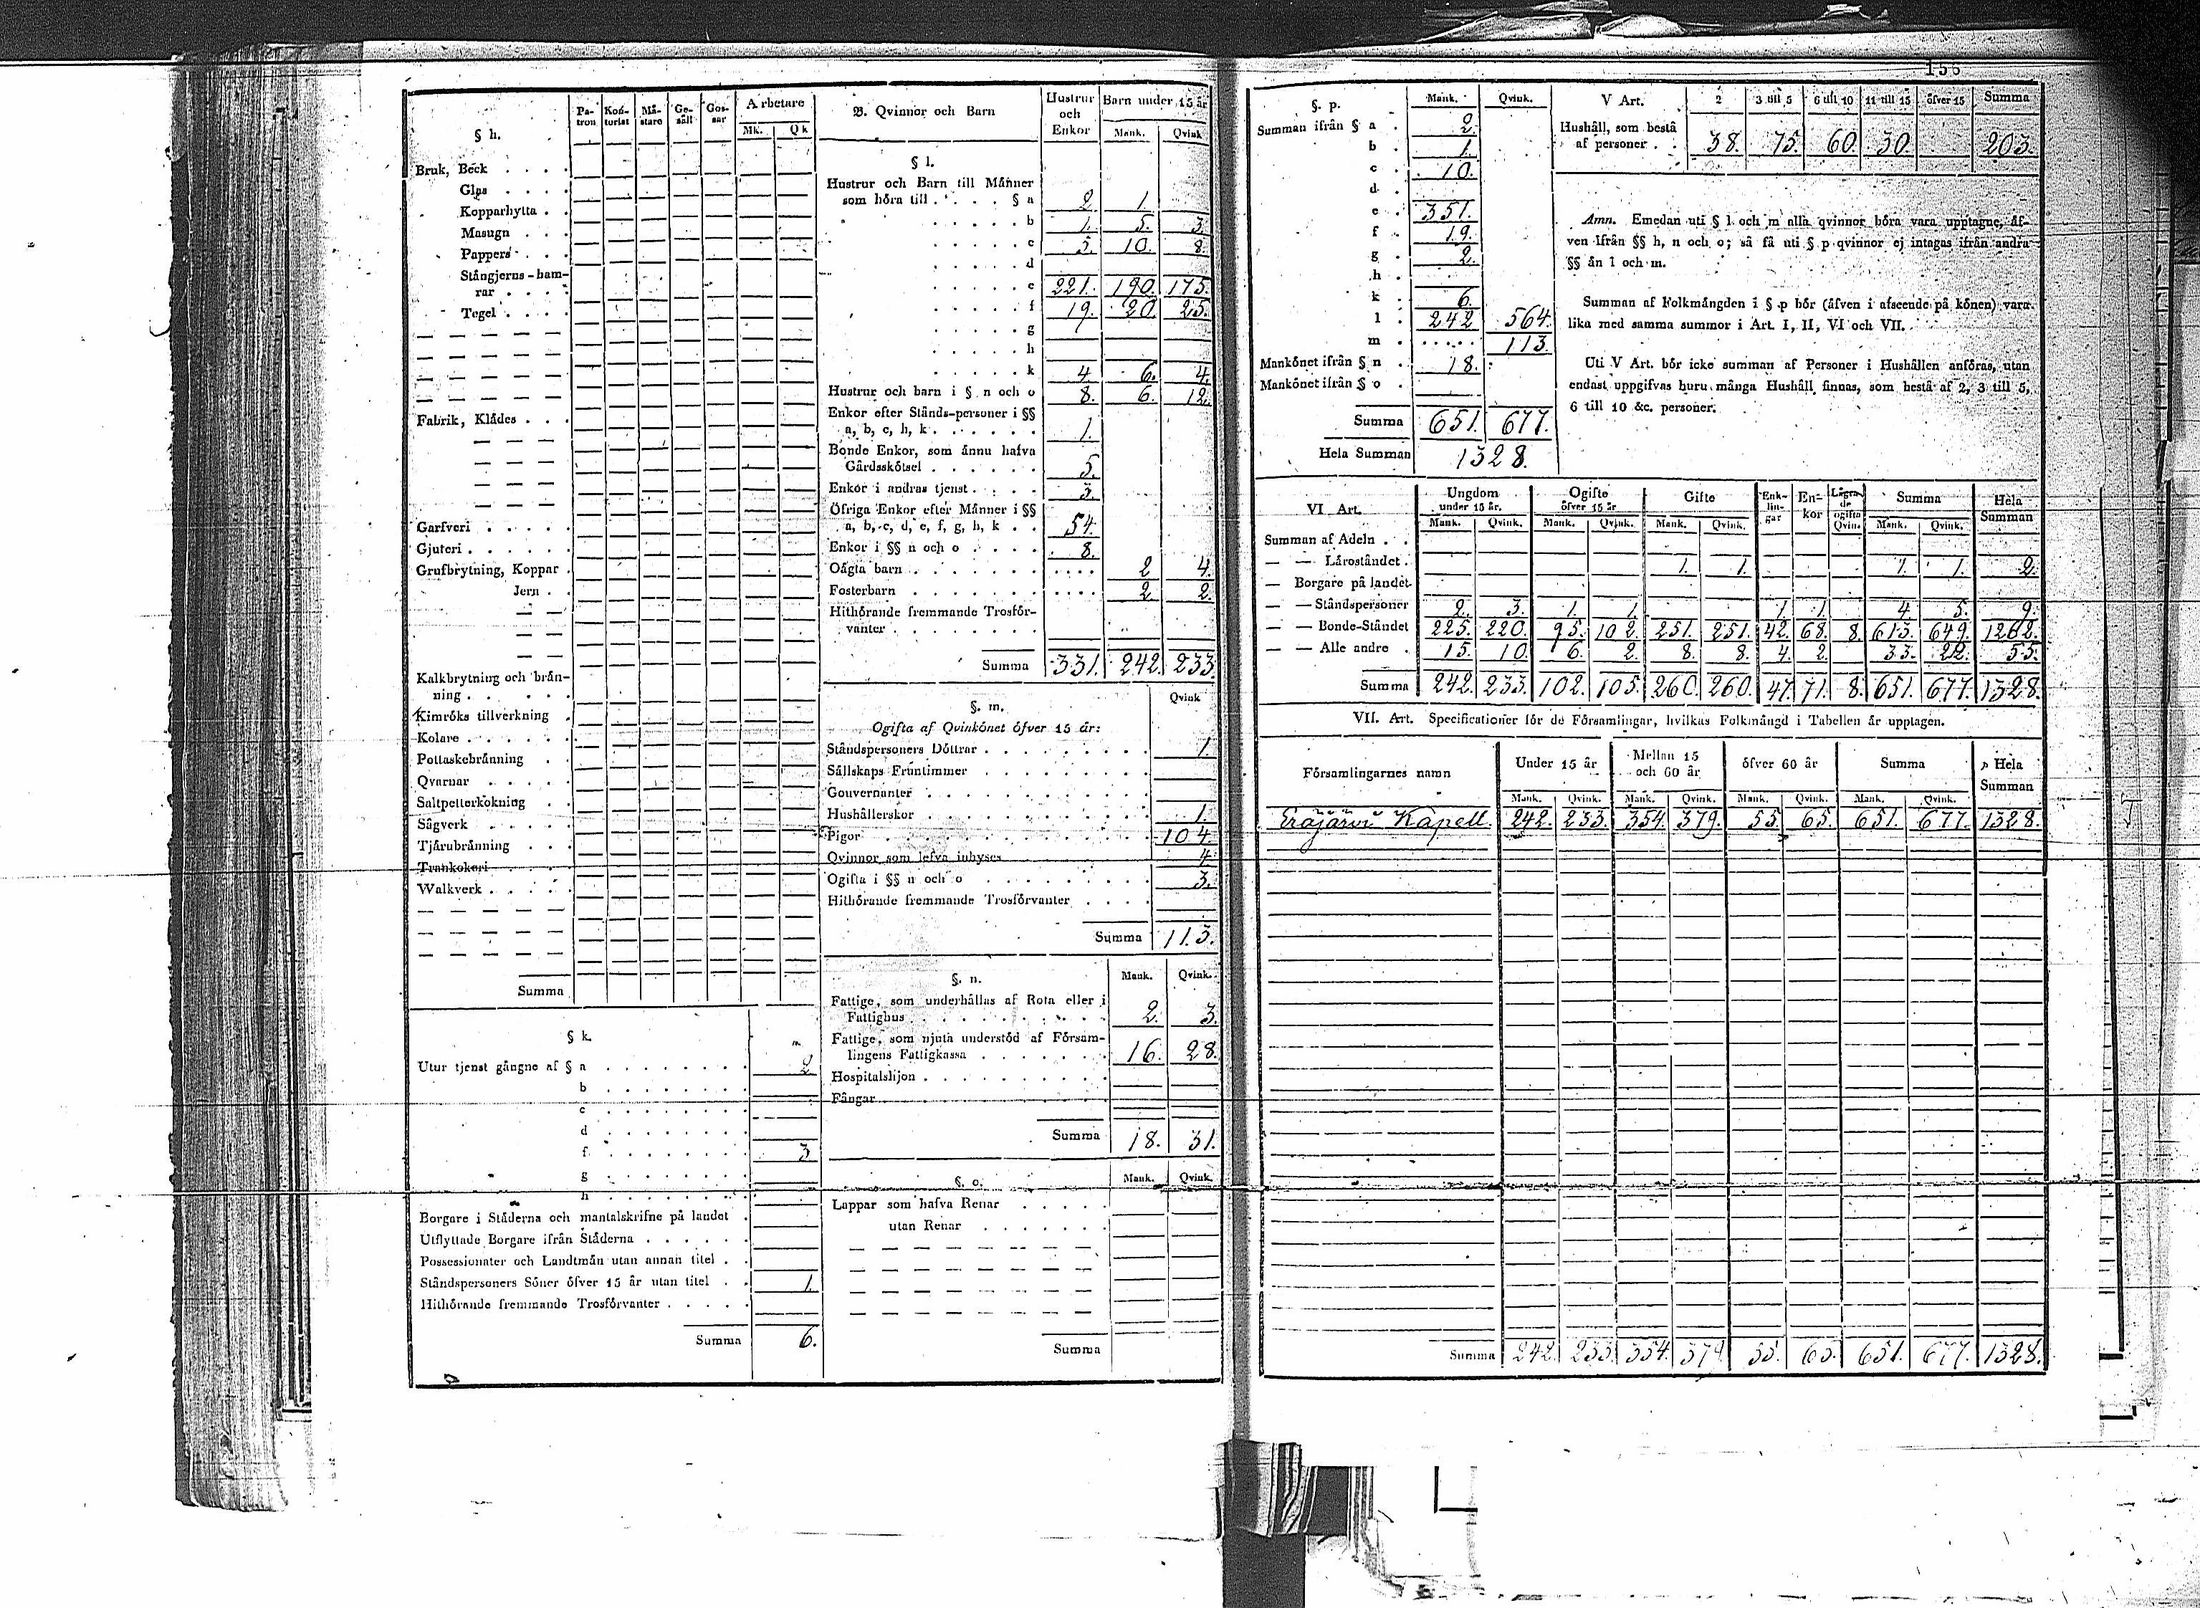 155
§ h.
Pa-tron Kon-torist Mä-stare Ge-säll Gos-sar Arbetare
Mk. Qk
Bruk, Beck . . . .
Glas . . . .
Kopparhytta . .
Masugn . . .
Pappers . . .
Stångjerns-ham-
rar . . . .
Tegel . . . .
Fabrik, Klådes . . .
Garfveri . . . . .
Gjuteri . . . . . .
Grufbrytning, Koppar .
Jern . .
Kalkbrytning och brän-
ning . . . . . .
Kimröks tillverkning .
Kolare . . . . . .
Pottaskebränning . .
Qvarnar . . . . .
Saltpetterkokning . .
Sågverk . . . . .
Tjärubränning . . .
Trankokeri
Walkverk . . . . .
Summa
§ k.
Utur tjenst gångne af § a . . . . . . . 2
b . . . . . . .
c . . . . . . .
d . . . . . . .
f . . . . . . . 3
g . . . . . . .
h . . . . . . .
Borgare i Städerna och mantalskrifne på landet .
Utflyttade Borgare ifrån Städerna . . . . . .
Possessionater och Landtmän utan annan titel . .
Ståndspersoners Söner öfver 15 år utan titel . . 1.
Hithörande fremmande Trosförvanter . . . . .
Summa 6.
B. Qvinnor och Barn
Hustrur och Enkor Barn under 15 år
Mank. Qvink
§ l.
Hustrur och Barn till Männer
som höra till . . . . . § a 2 1.
b 1. 5. 3.
c 3. 10. 8.
d
e 221. 190. 175.
f 19. 20. 25.
g
h
k 4. 6. 4.
Hustrur och barn i § n och o 8. 6. 12.
Enkor efter Stånds-personer i §§
a, b, c, h, k . . . . . . 1.
Bonde Enkor, som ännu hafva
Gårdsskötsel . . . . . . 5.
Enkor i andras tjenst . . . . 3.
Öfriga Enkor efter Männer i §§
a, b, c, d, e, f, g, h, k . . 54.
Enkor i §§ n och o . . . . . 8.
Oägta barn . . . . . . . . 2. 4.
Fosterbarn . . . . . . . . 2. 2.
Hithörande fremmande Trosför-
vanter . . . . . . .
Summa 331. 242. 233
§. m.
Qvink
Ogifta af Qvinkönet öfver 15 år:
Ståndspersoners Döttrar . . . . . . . . 1.
Sällskaps Fruntimmer . . . . . . . .
Gouvernanter . . . . . . . . . .
Hushållerskor . . . . . . . . . . 1.
Pigor . . . . . . . . . . . 104.
Qvinnor som lefva inhyses 4.
Ogifta i §§ n och o . . . . . . . . 3.
Hithörande fremmande Trosförvanter . . . .
Summa 113.
§. n. Mank. Qvink.
Fattige, som underhållas af Rota eller i
Fattighus . . . . . . . . . . 2. 3.
Fattige, som njuta understöd af Försam-
lingens Fattigkassa . . . . . . . 16. 28.
Hospitalshjon . . . . . . . . . .
Fångar
Summa 18. 31.
§. o. Mank. Qvink.
Lappar som hafva Renar . . . . .
utan Renar . . . . . . .
Summa
§. p. Mank. Qvink.
Summan ifrån § a . 2.
b . 1.
c . 10.
d .
e . 351.
f . 19.
g . 2.
h .
k . 6.
l . 242 564.
m . . . . . . 113
Mankönet ifrån § n . 18.
Mankönet ifrån § o .
Summa 651. 677.
Hela Summan 1328.
V Art. 2 3 till 5 6 till 10 11 till 15 öfver 15 Summa
Hushåll, som bestå
af personer . . 38. 75. 60. 30. 203.
Anm. Emedan uti § l och m alla qvinnor böra vara upptagne, äf-
ven ifrån §§ h, n och o; så få uti § p qvinnor ej intagas ifrån andra
§§ än l och m.
Summan af Folkmängden i § p bör (äfven i afseende på könen) vara
lika med samma summor i Art. I, II, VI och VII.
Uti V Art. bör icke summan af Personer i Hushållen anföras, utan
endast uppgifvas huru många Hushåll finnas, som bestå af 2, 3 till 5,
6 till 10 &c. personer.
VI Art. Ungdom under 15 år. Ogifte öfver 15 år Gifte Enk-lin-gar En-kor Lägra-de ogifta Qvin. Summa Hela Summan
Mank. Qvink. Mank. Qvink. Mank. Qvink. Mank. Qvink.
Summan af Adeln . .
— — Läroståndet . 1. 1. 1. 1. 2.
— Borgare på landet
— — Ståndspersoner 2. 3. 1. 1. 1. 1. 4. 5. 9.
— — Bonde-Ståndet 225. 220. 95. 102. 251. 251. 42. 68. 8. 613. 649. 1262.
— — Alle andre . 15. 10. 6. 2. 8. 8. 4. 2. 33. 22. 55.
Summa 242. 233. 102. 105. 260. 260. 47. 71. 8. 651. 677. 1328.
VII. Art. Specificationer för de Församlingar, hvilkas Folkmängd i Tabellen är upptagen.
Församlingarnes namn Under 15 år Mellan 15 och 60 år öfver 60 år Summa Hela Summan
Mank. Qvink. Mank. Qvink. Mank. Qvink. Mank. Qvink.
Eräjärvi Kapell 242. 233. 354. 379. 55. 65. 651. 677. 1328.
Summa 242. 233. 354. 379 55. 65. 651. 677. 1328.